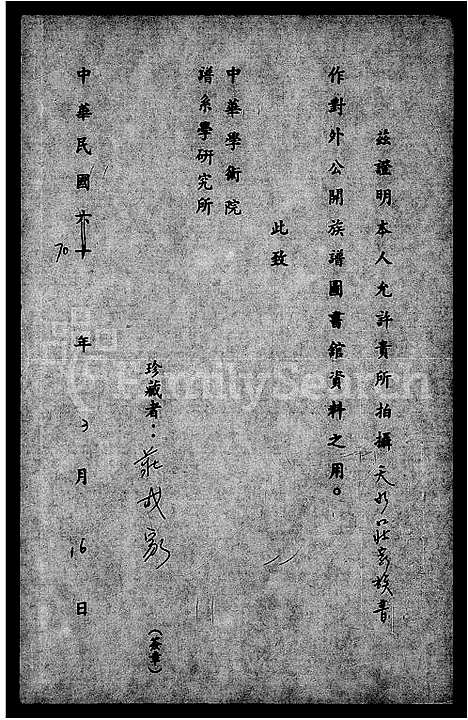 茲證明本人允許貴所拍攝天水莊氏族譜
作對外公開族譜圖書館資料之用。
此致
中華學術院
譜系學研究所
珍藏者：莊
（簽章）
中華民國六十
70年3月16日
FamilySearch